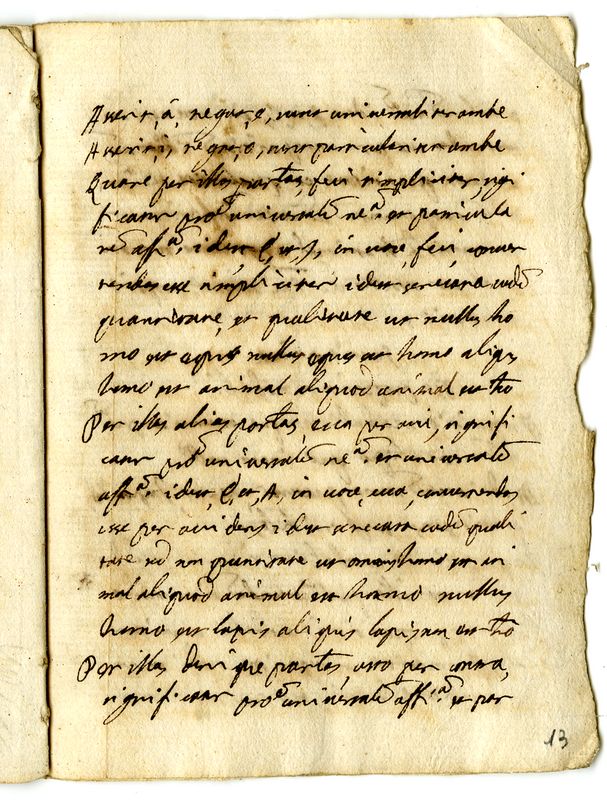 Asserit, â, negat, e, sunt universaliter ambe
Asserit, i, negat, o, sunt particulariter ambe
Quare per illas partes, feci simpliciter, signi
ficatur pro˜ universale˜ ne.ª et particula
re˜ aff.ª, idest E, et, I, in voce, feci, conver
tendas esse simpliciter idest servata eade˜
quantitate, et qualitate ut nullus ho
mo est equus nullus equus est homo aliquis
homo est animal aliquod animal est ho˜
Per illas alias partes, eva per acci, signifi
catur pro˜ universale˜ ne.ª et universale˜
aff.ª idest, E, et, A, in voce, eva, convertendas
esse per accidens idest servata eade˜ quali
tate sed non quantitate ut omnis homo est ani
mal aliquod animal est homo nullus
homo est lapis aliquis lapis non est ho˜
Per illas denique partes, asto per contra,
significatur pro˜ universale˜ aff.ª et par
13